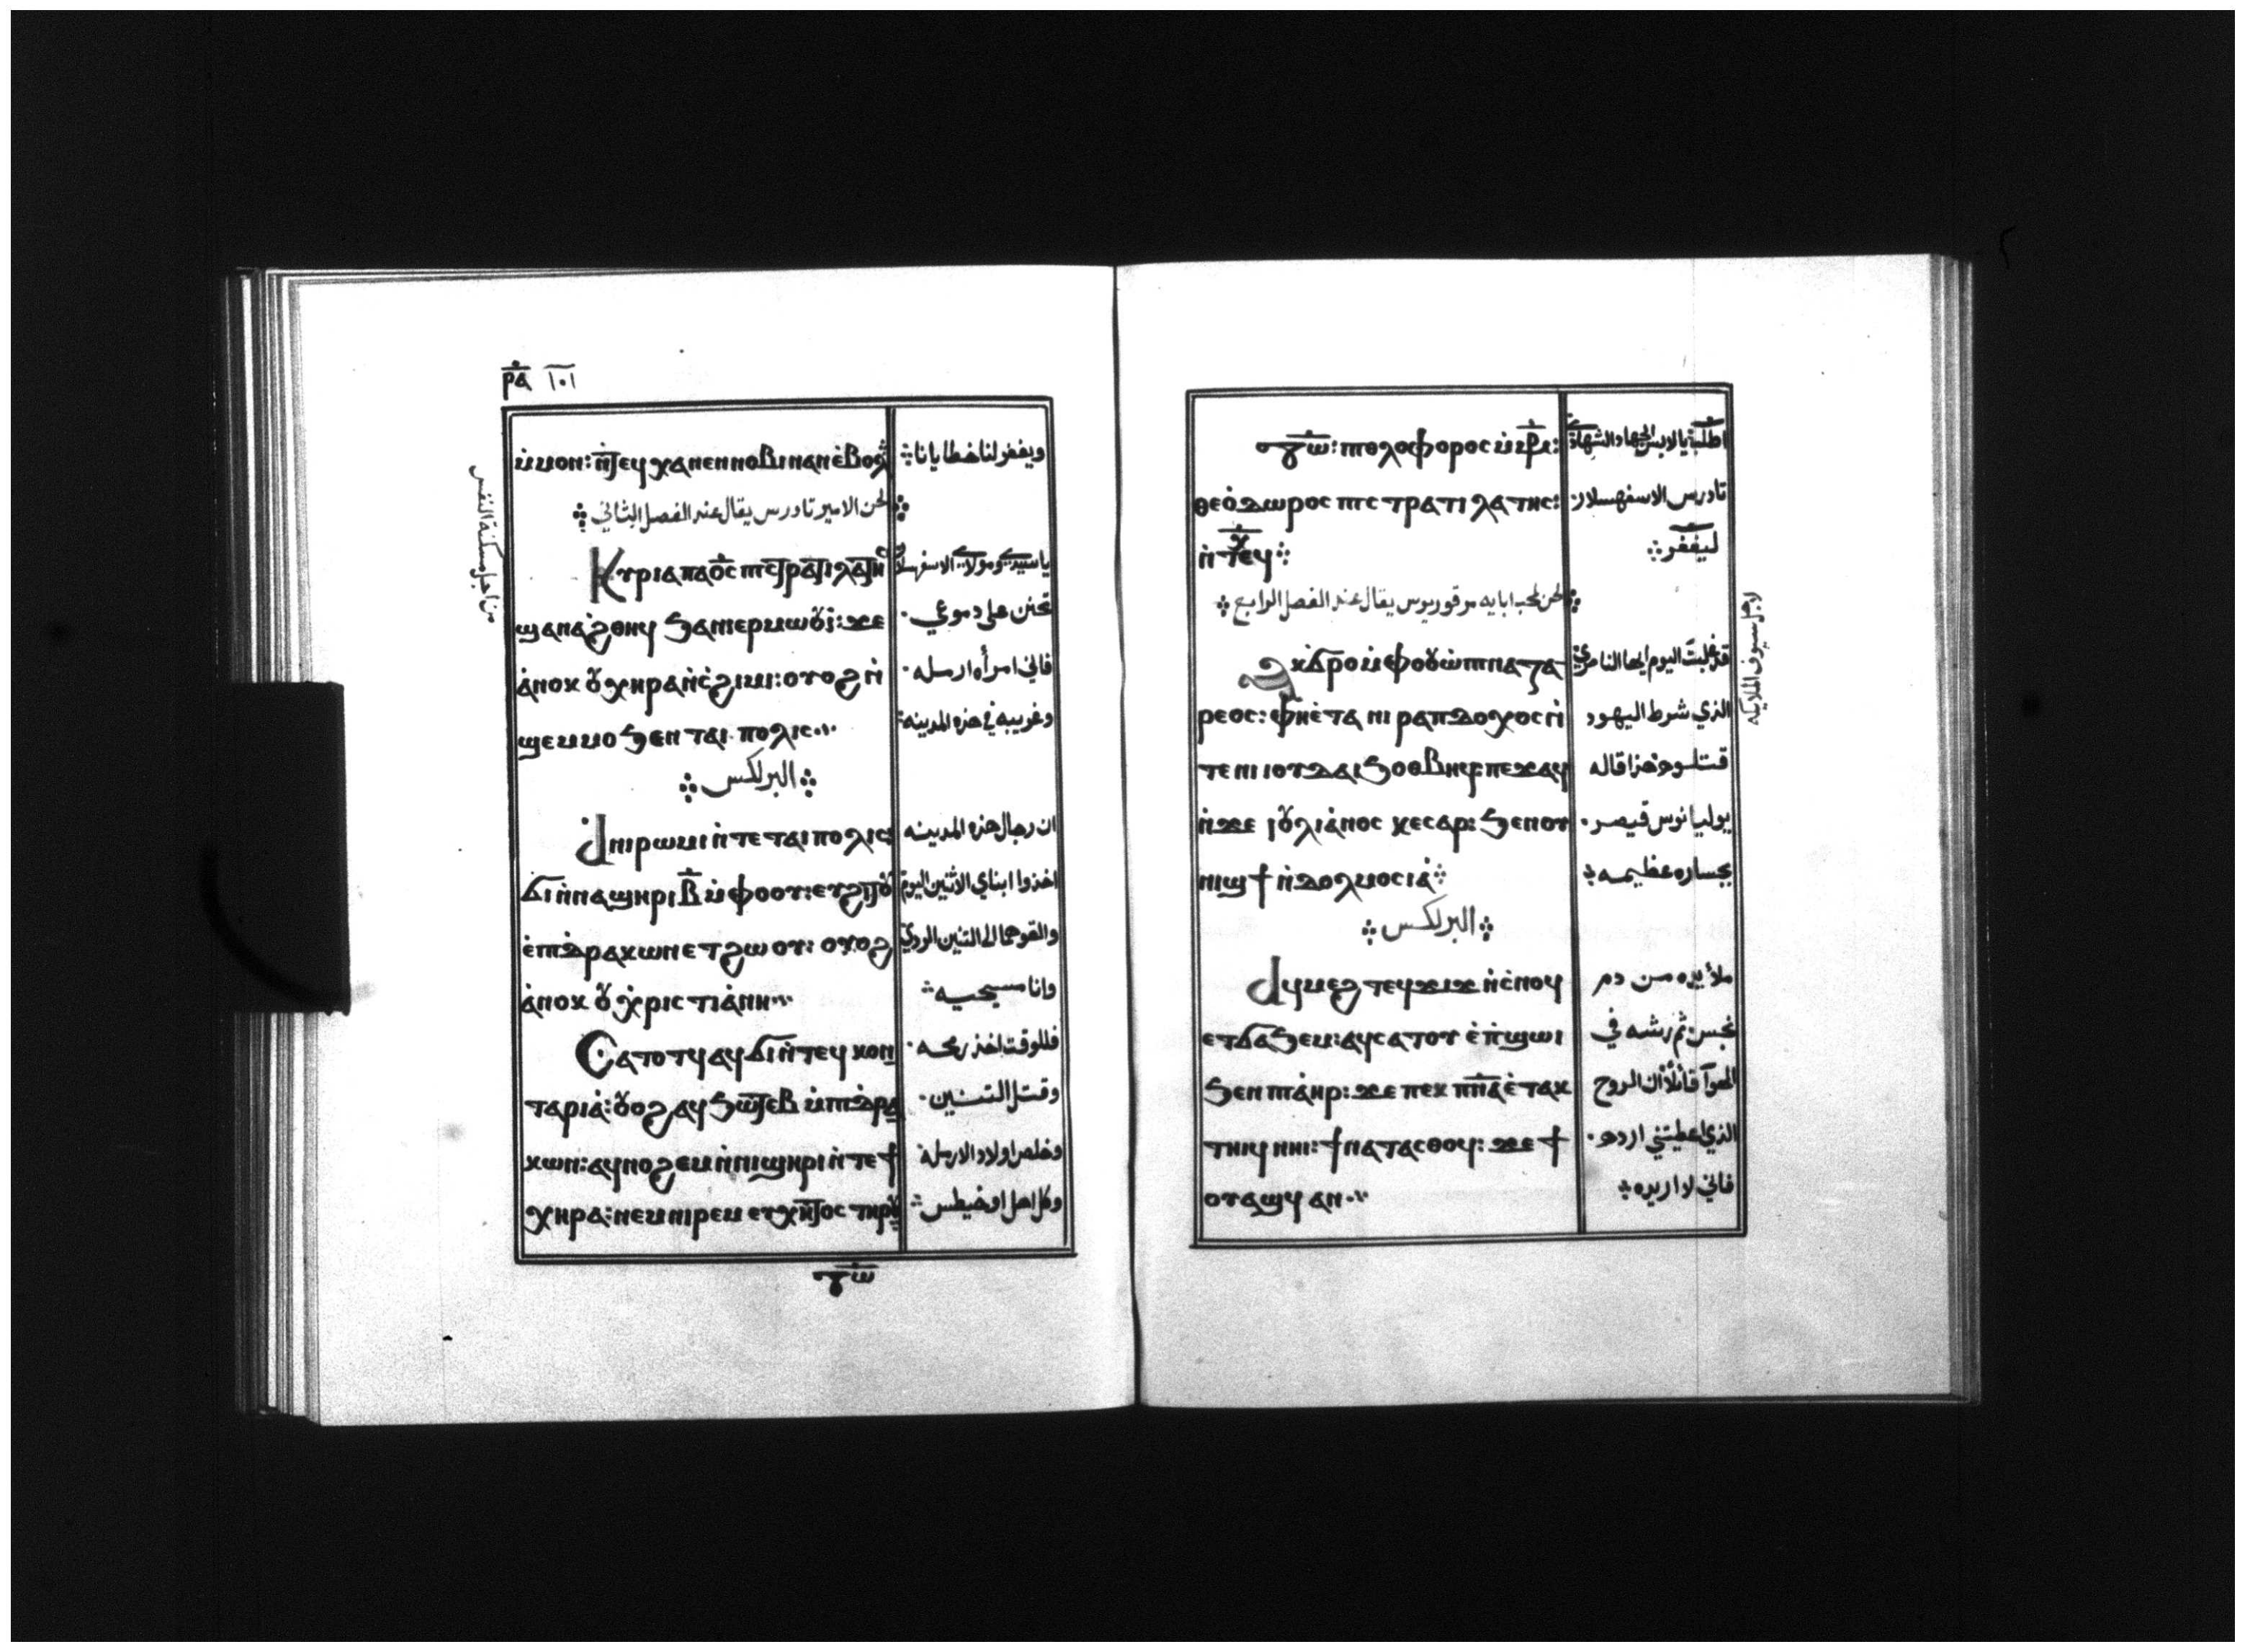 ⲣ̅ⲁ̅ ١٠١
ⲙ̀ⲙⲟⲛ: ⲛ̀ⲧⲉϥ ⲭⲁ ⲛⲉⲛⲛⲟⲃⲓ ⲛⲁⲛ ⲉ̀ⲃⲟⲗ
ويغفر لنا خطايانا
لحن الامير تادرس يقال عند الفصل الثاني
Ⲕⲩⲣⲓⲁ ⲡⲁⲟ̅ⲥ̅ ⲡⲓⲥⲧⲣⲁⲧⲓⲗⲁⲧⲏⲥ
يا سيدي ومولاي الاسفهسلار
ϣⲁⲛⲁϩⲑⲏϥ ϧⲁ ⲛⲓⲉⲣⲙⲱⲟⲩⲓ: ϫⲉ
تحنن على دموعي.
ⲁ̀ⲛⲟⲕ ⲟⲩⲭⲏⲣⲁ ⲛ̀ⲥ̀ϩⲓⲙⲓ: ⲟⲩⲟϩ ⲛ̀
فاني امرأه ارمله.
ϣⲉⲙⲙⲟ ϧⲉⲛ ⲧⲁⲓ ⲡⲟⲗⲓⲥ
وغريبه في هذه المدينه
البركس
Ⲁ̀ ⲛⲓⲣⲱⲙⲓ ⲛ̀ⲧⲉ ⲧⲁⲓ ⲡⲟⲗⲓⲥ:
ان رجال هذه المدينه
ϭⲓ ⲛ̀ⲛⲁϣⲏⲣⲓ ⲃ̅ ⲙ̀ⲫⲟⲟⲩ: ⲉⲩϩⲓⲧⲟⲩ
اخذوا ابناي الاثنين اليوم
ⲉ̀ⲡⲓⲇⲣⲁⲕⲱⲛ ⲉⲧϩⲱⲟⲩ: ⲟⲩⲟϩ
والقوهما الى التنين الردي
ⲁ̀ⲛⲟⲕ ⲟⲩⲭ̀ⲣⲓⲥⲧⲓⲁ̀ⲛⲏ
وانا مسيحيه
Ⲥⲁⲧⲟⲧϥ ⲁϥϭⲓ ⲛ̀ⲧⲉϥ ⲕⲟⲛ
فللوقت اخذ رمحه.
ⲧⲁⲣⲓⲁ̀: ⲟⲩⲟϩ ⲁϥϧⲱⲧⲉⲃ ⲙ̀ⲡⲓⲇⲣⲁ
وقتل التنين.
ⲕⲱⲛ: ⲁϥⲛⲟϩⲉⲙ ⲛ̀ⲛⲓϣⲏⲣⲓ ⲛ̀ⲧⲉ ϯ
وخلص اولاد الارمله
ⲭⲏⲣⲁ: ⲛⲉⲙ ⲛⲓⲣⲉⲙ ⲉⲩⲭⲏⲧⲟⲥ ⲧⲏⲣⲟⲩ
وكل اهل اوخيطس
من اجل مسكنة النفس
ⲧⲱⲃϩ: ⲡⲓⲁⲑⲗⲟⲫⲟⲣⲟⲥ ⲙ̀ⲙⲁⲣ:
اطلب يا لابس الجهاد الشهادة
ⲑⲉⲟ̀ⲇⲱⲣⲟⲥ ⲡⲓⲥⲧⲣⲁⲧⲓⲗⲁⲧⲏⲥ:
تادرس الاسفهسلار.
ⲛ̀ⲧⲉϥ ⲭ
ليغفر
لحن لمحب ابايه مرقوريوس يقال عند الفصل الرابع
Ⲁⲕϭⲣⲟ ⲙ̀ⲫⲟⲟⲩ ⲱ̀ ⲡⲓⲛⲁⲍⲁ
قد غلبت اليوم ايها الناصري
ⲣⲉⲟⲥ: ⲫⲏⲉ̀ⲧⲁ ⲛⲓ ⲡⲁⲣⲁⲇⲟⲭⲟⲥ ⲛ̀
الذي شرط اليهود
ⲧⲉ ⲛⲓⲓⲟⲩⲇⲁⲓ ϧⲟⲑⲃⲏϥ: ⲡⲉϫⲁϥ
قتلوه هذا قاله
ⲛ̀ϫⲉ ⲓⲟⲩⲗⲓⲁ̀ⲛⲟⲥ ⲕⲉⲥⲁⲣ: ϧⲉⲛ ⲟⲩ
يوليانوس قيصر.
ⲛⲓϣϯ ⲛ̀ⲇⲟⲗⲙⲟⲥⲓⲁ̀
بجساره عظيمه
البركس
Ⲁϥⲙⲉϩ ⲧⲉϥϫⲓϫ ⲛ̀ⲥ̀ⲛⲟϥ
ملأ يده من دم
ⲉⲧϭⲁϧⲉⲙ: ⲁϥⲥⲁⲧⲟⲩ ⲉ̀ⲡ̀ϣⲱⲓ
نجس ثم رشه في
ϧⲉⲛ ⲡⲓⲁ̀ⲏⲣ: ϫⲉ ⲡⲉⲕ ⲡ̅ⲛ̅ⲁ̅ ⲉ̀ⲧⲁⲕ
الهوآ قائلاً ان الروح
ⲧⲏⲓϥ ⲛⲏⲓ: ϯⲛⲁⲧⲁⲥⲑⲟϥ: ϫⲉ ϯ
الذي اعطيتني ارده.
ⲟⲩⲁϣϥ ⲁⲛ
فاني لا اريده
لاجل سيوف الملايكه